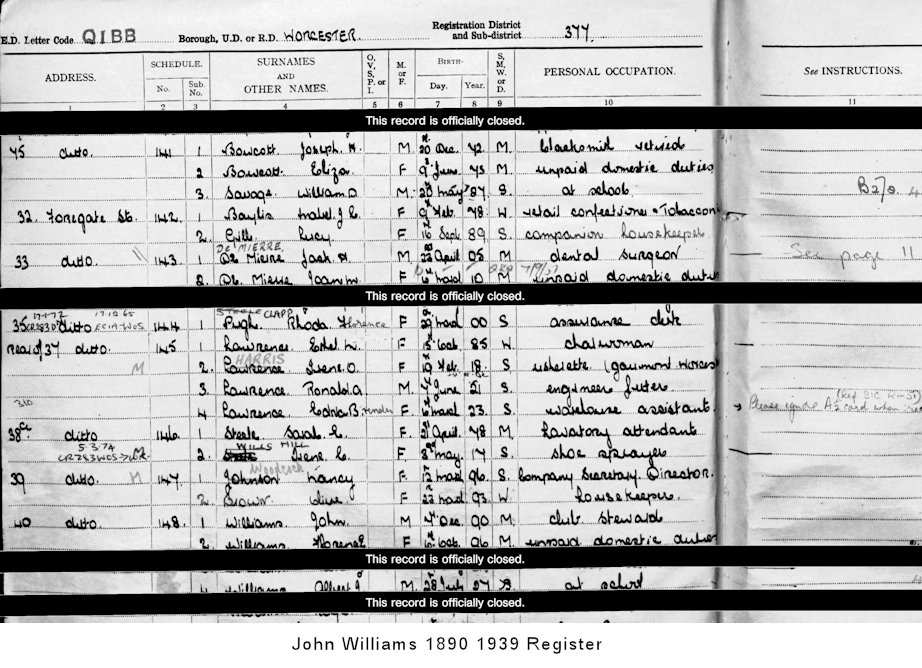 E.D. Letter Code QIBB Borough, U.D. or R.D. WORCESTER. Registration District and Sub-district 377.
ADDRESS. SCHEDULE. No. Sub. No. SURNAMES AND OTHER NAMES. O, V, S, P. or I. M. or F. BIRTH- Day. Year. S, M, W. or D. PERSONAL OCCUPATION. See INSTRUCTIONS.
1 2 3 4 5 6 7 8 9 10 11
This record is officially closed.
45 ditto. 141 1 Bowcott Joseph H. M 20 Dec. 72 M. retired
2 Bowcott Eliza F 9 June 73 M unpaid domestic duties
3 Savage William D. M. 20 May 87 S. at school.
32. Foregate St. 142. 1 Baylis Mabel J. E F 9 Feb. 78 W. retail confectioner & Tobacconist
2. Lucy F. 16 Sept. 89 S. companion housekeeper
DE MIERRE
33 ditto. 143. 1 De Mierre Jack H. M 23 April 05 M dental surgeon See page 11
2. De Mierre Joan M. F 6 March 10 M unpaid domestic duties
This record is officially closed.
STEELE CLAPP
35 ditto 144 1 Pugh Rhoda Florence F 29 March 00 S assurance clerk
rear of 37 ditto. 145 1 Lawrence Ethel M. F 15 Oct. 85 W. chairwoman
HARRIS
2. Lawrence Irene O. F 19 Feb. 18. S. usherette (Gaumont Worcest
3. Lawrence Ronald A. M. 4 June 21 S. engineers fitter
4 Lawrence Edna B. F 6 March 23. S. warehouse assistant.
38 ditto 146. 1 Steele Sarah E. F. 21 April 78 M. Lavatory attendant
5.3.74
WILLS HILL
2. Irene E. F 8 May. 17 S. shoe sprayer
Woodcock
39 ditto. 147. 1 Johnson Nancy F 12 March 96. S. Company Secretary Director.
2. Brown Olive F 23 March 93. W. housekeeper.
40 ditto. 148. 1 Williams John. M 4 Dec. 90 M. club steward
2. Williams Florence E F 16 Oct. 96 M unpaid domestic duties
This record is officially closed.
4 Williams Albert J M. 28 July 27 S at school
This record is officially closed.
John Williams 1890 1939 Register